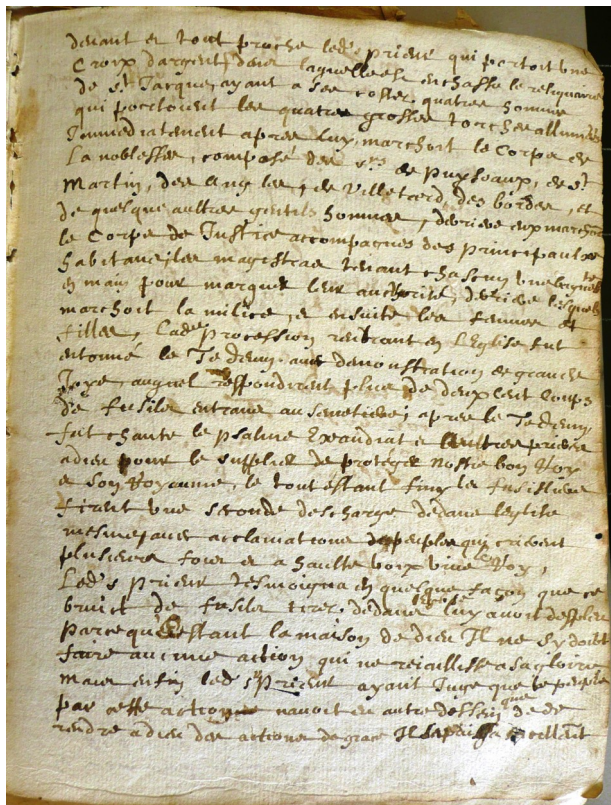 devant et tout proche led. s.r prieur qui portoit une
Croix dargent dans laquelle est enchasse le reliquaire
de s.t Jacques, ayant a ses costez quatre hommes
qui portoient les quatres grosses torches allumées
Immediatement apres luy, marchoit le Corps de
La noblesse, composé des s.rs de Puyseaux, de s.t
Martin, des Angles, de Villetard, des bordes, et
de quelque aultres gentils hommes, derriere eux marchoit
le Corps de Justice accompagnés des principaulx
habitans, les magistras tenant chascun une baguette
en main pour marquer leur aucthorité, derriere lesquels
marchoit la milice, et ensuite les femmes et
filles, Lad.e Procession rentrant en l'Eglise fut
entonné le Te deum avec demonstration de grande
Joye auquel respondirent plus de deux cent Coups
de fusils entrans au Semetiere; apres le Te deum
fut chanté le psalme Exaudiat et aultres prieres
a dieu pour le supplier de proteger Nostre bon Roy
et Son Royaume, le tout estant finy les fusilliers
firent une seconde descharge dedans leglise
mesme avec acclamations du peuple qui crierent
plusieurs fois et a haulte voix vive le Roy,
Led. s.r Prieur tesmoigna en quelque façon que ce
bruict de fusils tirez dedans luy avoit desplu
parce qu'estant la maison de dieu Il ne sy doibt
faire aucune action qui ne rejaillisse a sa gloire
mais enfin led. s.r Prieur ayant Jugé que le peuple
par cette action navoit eu autre dessein que de
rendre a dieu des actions de grace Il